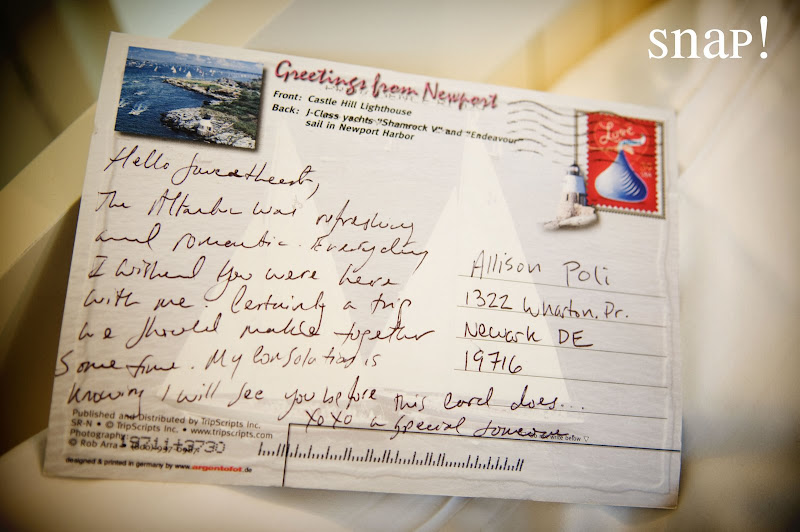 snap!
Greetings from Newport
Front: Castle Hill Lighthouse
Back: J-Class yachts "Shamrock V" and "Endeavour"
sail in Newport Harbor
Love
Hello Sweetheart,
The Atlantic was refreshing
and romantic. Everyday
I wished you were here
with me. Certainly a trip
we should make together
Sometime. My Consolation is
knowing I will see you before this card does...
XOXO a special someone
Allison Poli
1322 Wharton Dr.
Newark DE
19716
Published and Distributed by TripScripts Inc.
SR-N • © TripScripts Inc. • www.tripscripts.com
Photography:
© Rob Arra
19711+3730
designed & printed in germany by www.argentolot.de
write below